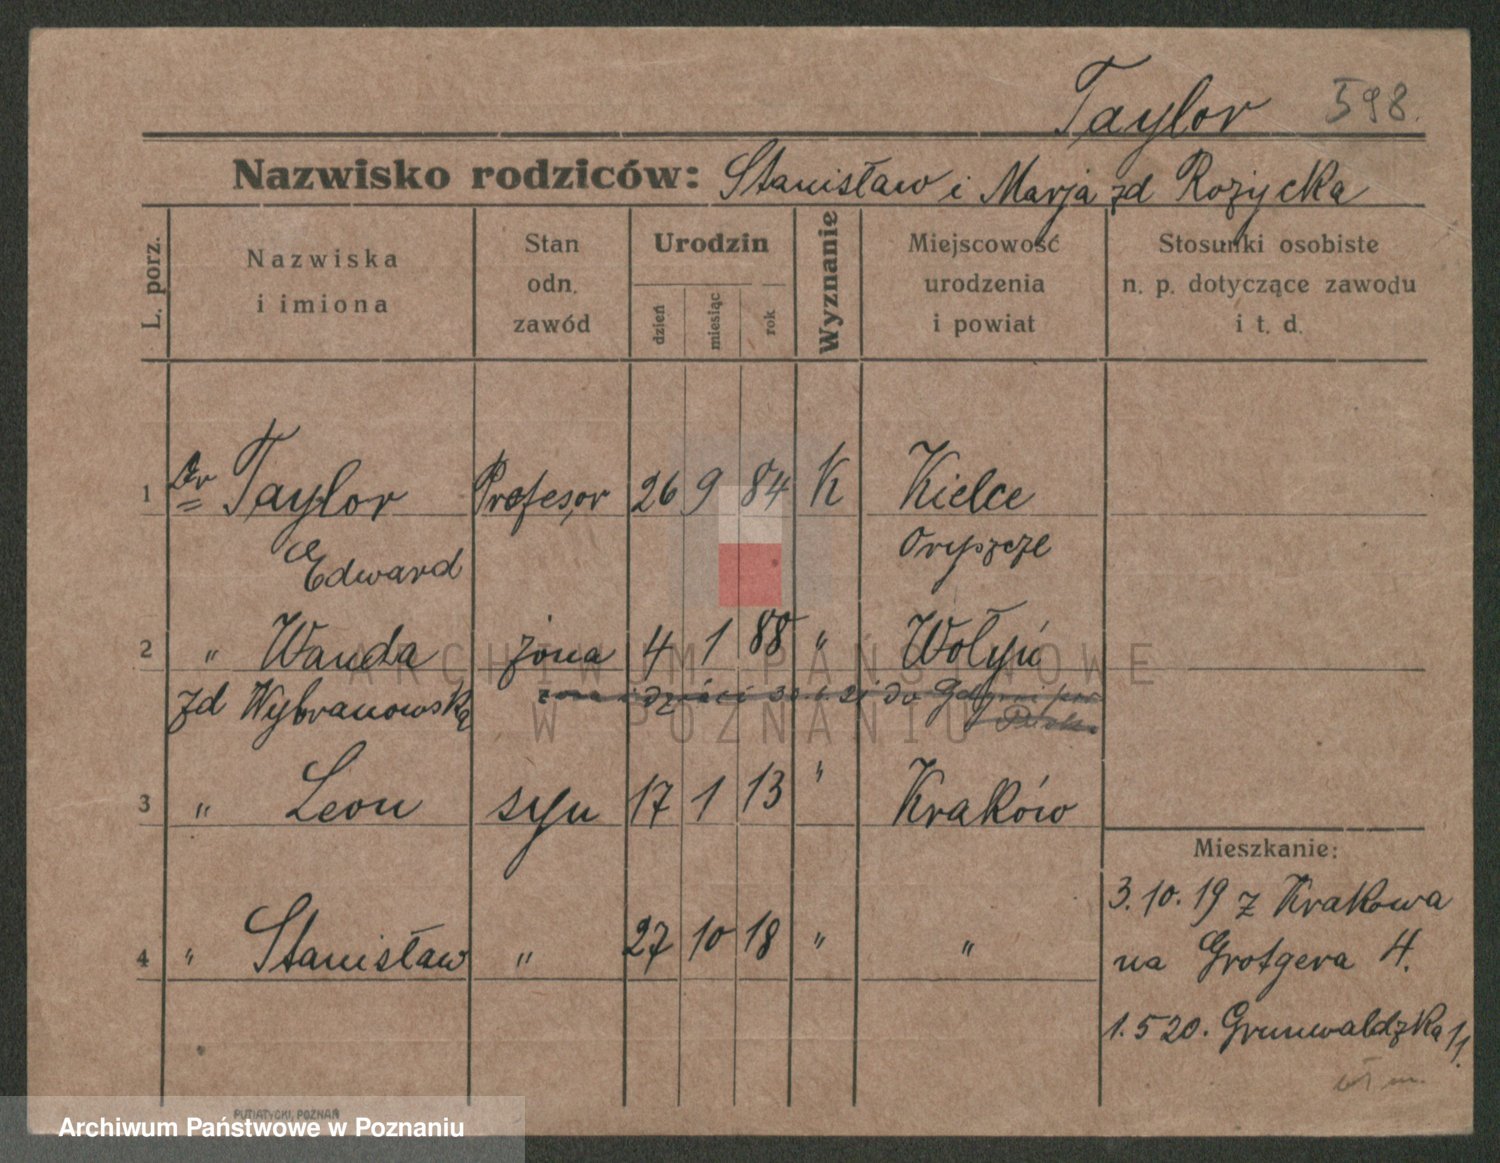 Taylor 598.
Nazwisko rodziców: Stanisław i Marja zd Rożycka
L. porz.
Nazwiska
i imiona
Stan
odn.
zawód
Urodzin
dzień
miesiąc
rok
Wyznanie
Miejscowość
urodzenia
i powiat
Stosunki osobiste
n. p. dotyczące zawodu
i t. d.
1 Dr Taylor Profesor 26 9 84 K Kielce
Edward Oryszcze
2 " Wanda żona 4 1 88 " Wołyń
zd Wybranowska
żona i dzieci do
3 " Leon syn 17 1 13 " Kraków
4 " Stanisław " 27 10 18 " "
Mieszkanie:
3.10.19 z Krakowa
na Grotgera 4.
1.5 20. Grunwaldzka 11.
PUTIATYCKI, POZNAŃ
ARCHIWUM PAŃSTWOWE
W POZNANIU
Archiwum Państwowe w Poznaniu